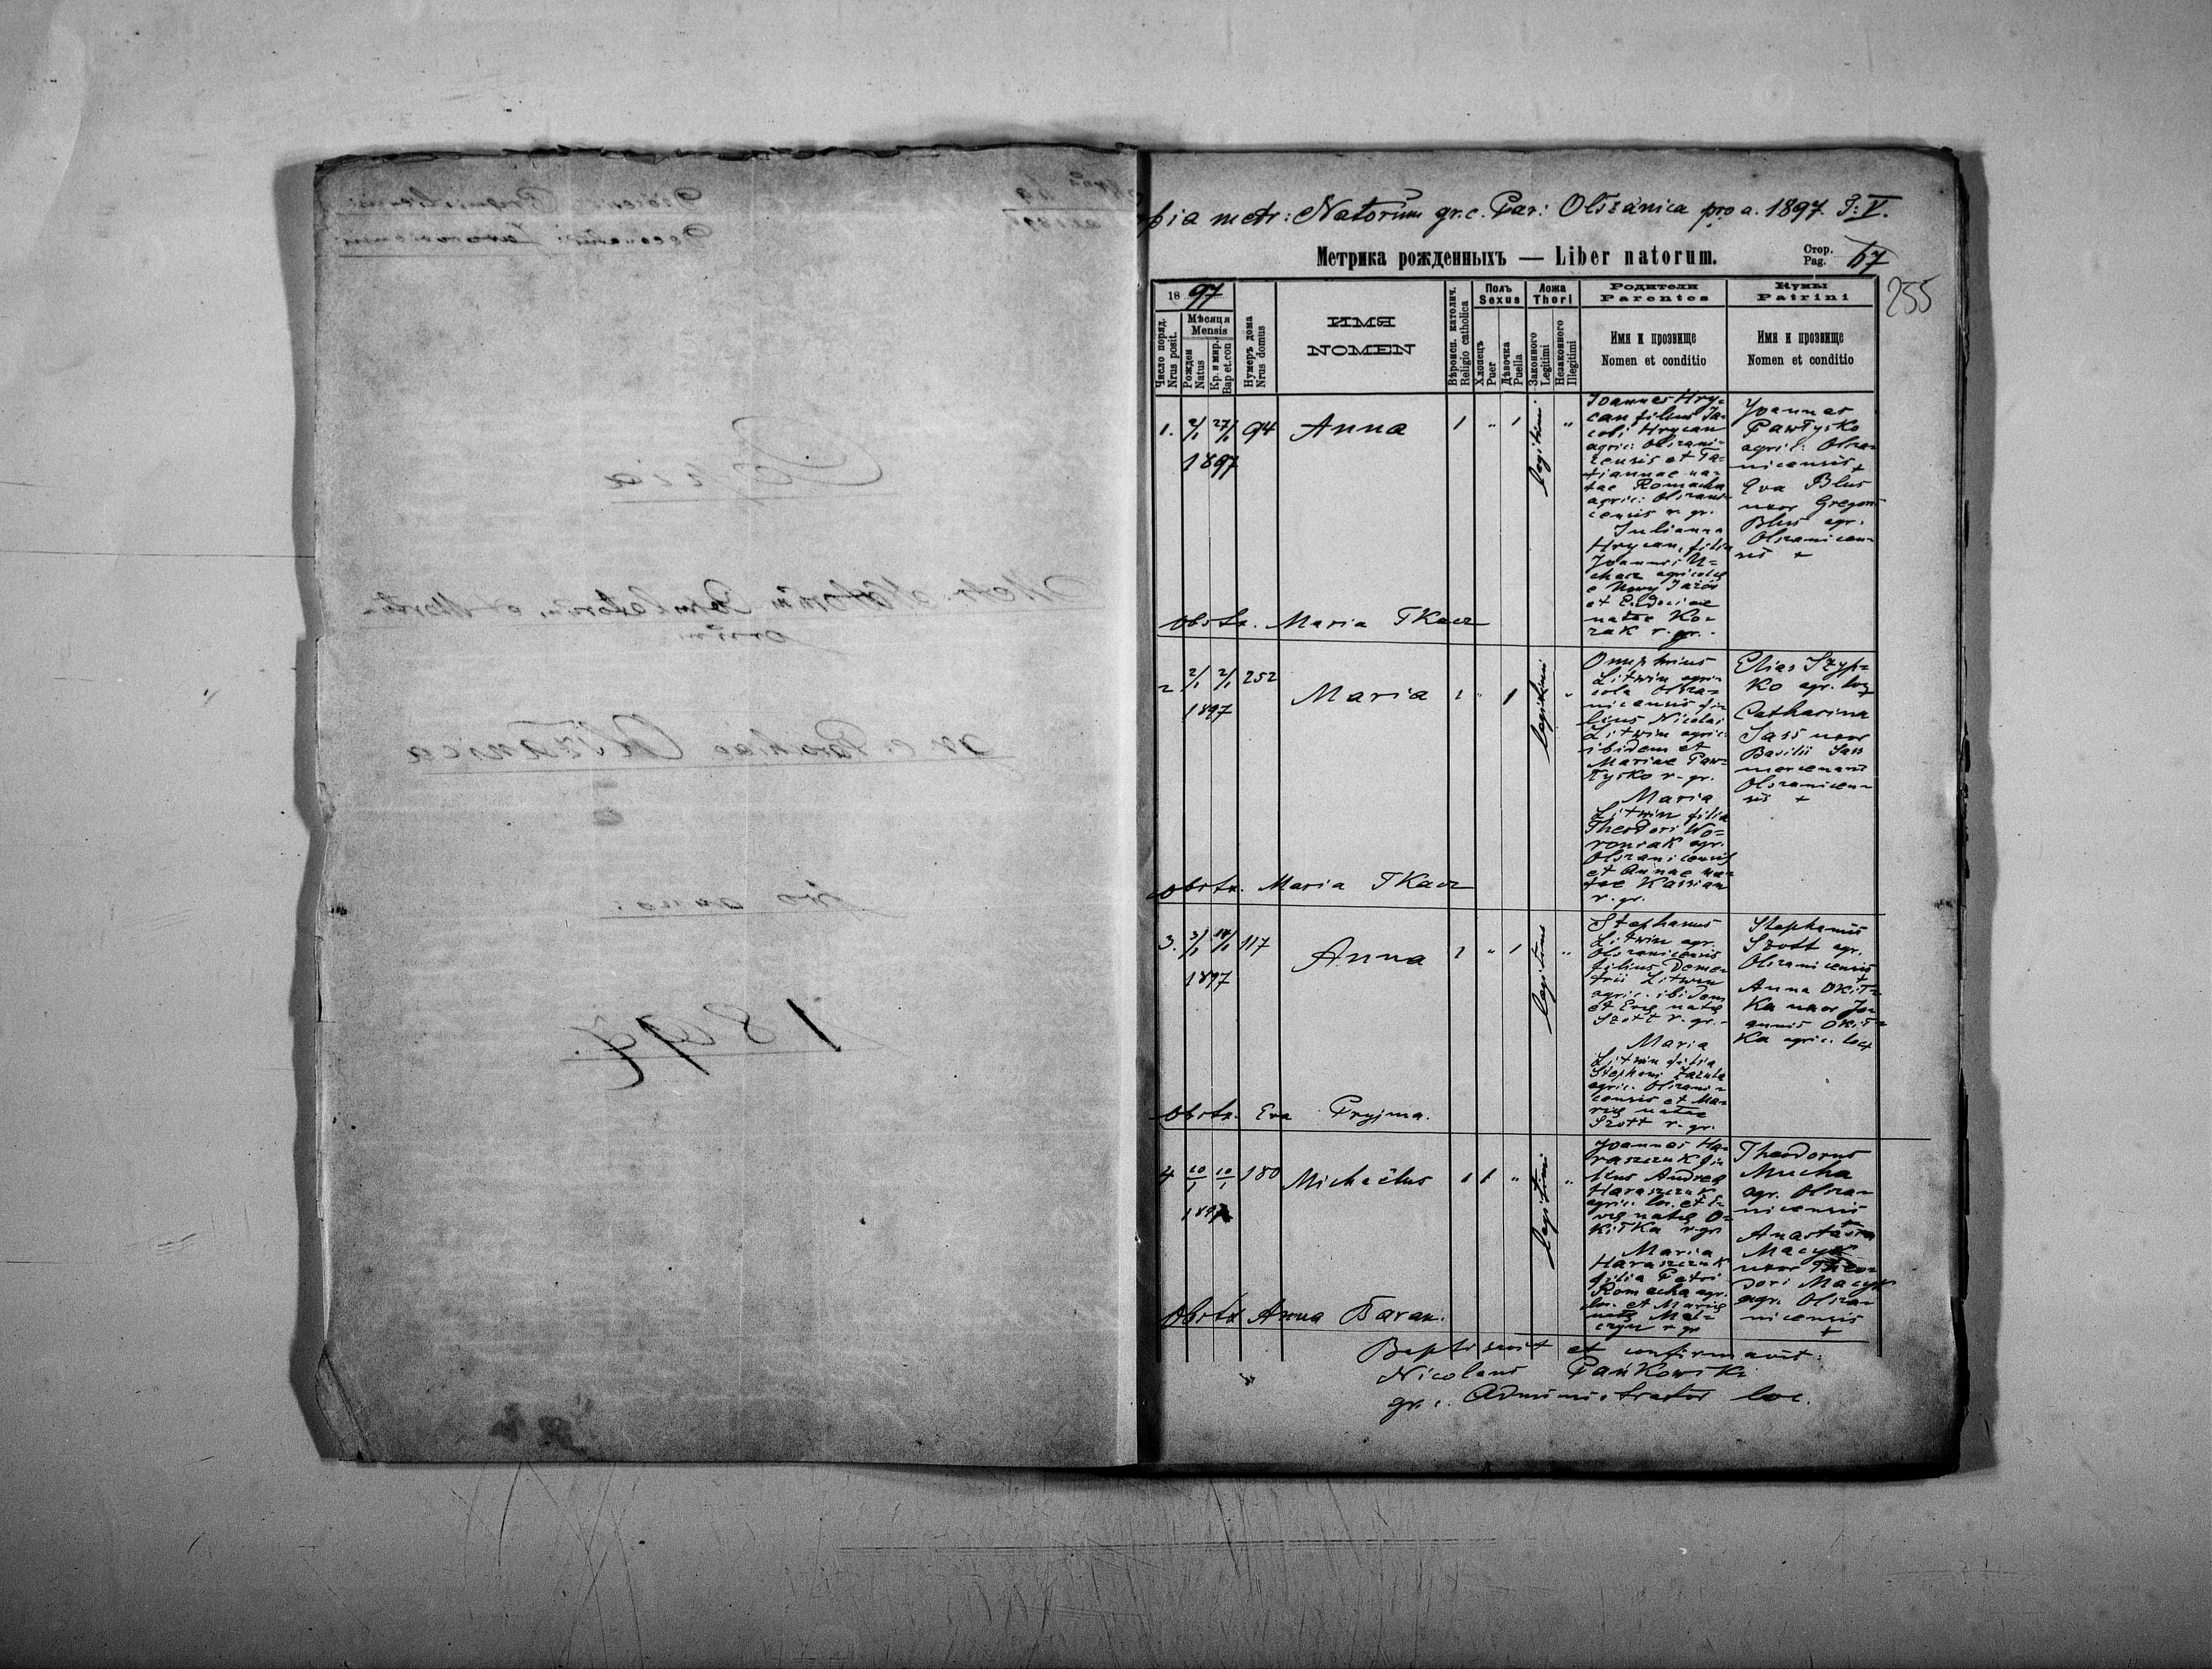 pia metr: Natorum gr. c. Par: Olszanica pro a. 1897. T: V.
Метрика рожденныхъ — Liber natorum.
Стор.
Pag. 67
255
18 97
Число поряд.
Nrus posit.
Мѣсяця
Mensis
Рожден
Natus
Кр. и мир.
Bap et.con
Нумеръ дома
Nrus domus
ИМЯ
NOMEN
Вѣроисп. католич.
Religio catholica
Полъ
Sexus
Хлопецъ
Puer
Дѣвочка
Puella
Ложа
Thori
Законного
Legitimi
Незаконного
Illegitimi
Родители
Parentes
Имя и прозвище
Nomen et conditio
Кумы
Patrini
Имя и прозвище
Nomen et conditio
1. 2/1 27/1 94 Anna 1 " 1 legitimi "
1897
Joannes Hry=
can filius Ja=
cobi Hrycan
agric: Olszani=
censis et Ta=
tiannae na=
tae Romacha
agric: Olszani=
censis r. gr.
Julianna
Hrycan, filia
Joannis
agricolae
e Nowy Jazów
et Eudociae
natae Ko=
zak r. gr.
Joannes
Pawłysko
agric: Olsza=
nicensis +
Eva Blus
uxor Gregorii
Blus agr.
Olszanicen=
sis +
Obstr. Maria Tkacz
2 2/1 2/1 252 Maria 1 " 1 legitimi "
1897
Onuphrius
Litwin agri=
cola Olsza=
nicensis fi=
lius Nicolai
Litwin agric.
ibidem et
Mariae Paw=
łysko r. gr.
Maria
Litwin filia
Theodori Wo=
roniak agr.
Olszanicensis
et Annae na=
tae Kassian
r. gr.
Elias Szyp=
ko agr. loc +
Catharina
Sass uxor
Basilii Sass
mercenarii
Olszanicen=
sis +
Obstr. Maria Tkacz
3. 3/1 14/1 117 Anna 1 " 1 legitimi "
1897
Stephanus
Litwin agr.
Olszanicensis
filius Deme=
trii Litwin
agric. ibidem
et Evę natę
Szott r. gr.
Maria
Litwin filia
Stephani
agric. Olszani=
censis et Ma=
rię natae
Szott r. gr.
Stephanus
Szott agr.
Olszanicensis +
Anna Okit=
ka uxor Jo=
annis Okit=
ka agric. loc +
Obstr. Eva Pryjma.
4 10/1 10/1 180 Michaëlus 1 1 " legitimi "
1897
Joannes Ha=
raszczuk fi=
lius Andreę
Haraszczuk
agric. loc. et E=
vę natę O=
kitka r. gr
Maria
Haraszczuk
filia Petri
Romacha agr.
loc. et Marię
natę
r. gr
Theodorus
Mucha
agr. Olsza=
nicensis
Anastasia
Macyk
uxor Theo=
dori Macyk
agr. Olsza=
nicensis
+
Obstr. Anna Baran.
Baptisavit et confirmavit:
Nicolaus Pańkowski
gr. c. Administrator loc.
Copia
gr. c. Parochiae Olszanica
pro anno:
1897.